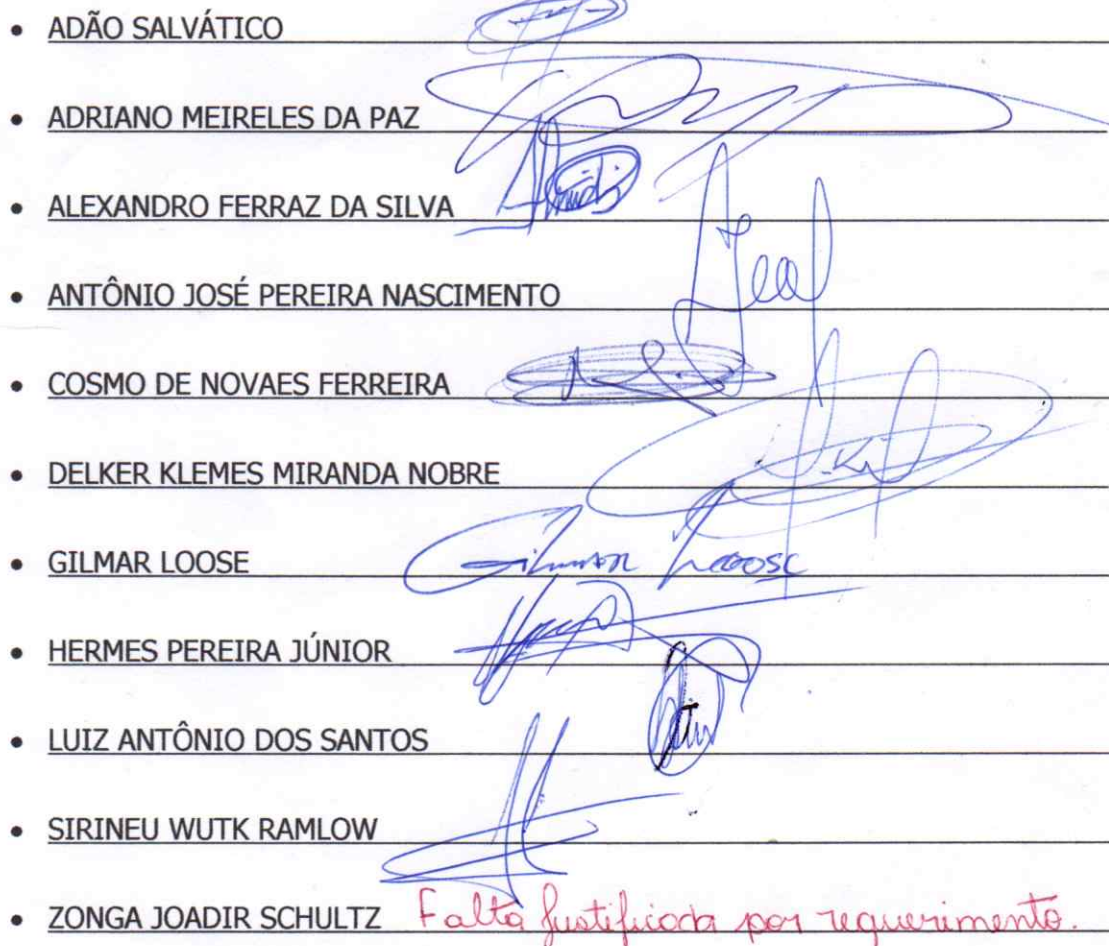 • ADÃO SALVÁTICO
• ADRIANO MEIRELES DA PAZ
• ALEXANDRO FERRAZ DA SILVA
• ANTÔNIO JOSÉ PEREIRA NASCIMENTO
• COSMO DE NOVAES FERREIRA
• DELKER KLEMES MIRANDA NOBRE
• GILMAR LOOSE Gilmar Loose
• HERMES PEREIRA JÚNIOR
• LUIZ ANTÔNIO DOS SANTOS
• SIRINEU WUTK RAMLOW
• ZONGA JOADIR SCHULTZ Falta justificada por requerimento.